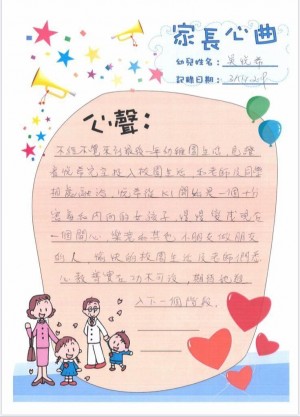 家長心曲
幼兒姓名：
記錄日期：
心聲：
不經不覺來到最後一年幼稚園生活，已經
見悅希完全投入校園生活，和老師及同學
相處融洽，悅希從K1開始是一個十分
害羞和內向的女孩子，慢慢變成現在
一個開心，樂意與其他小朋友做朋友
的人，愉快的校園生活及老師們悉
心教導實在功不可沒，期待她踏
入下一個階段。